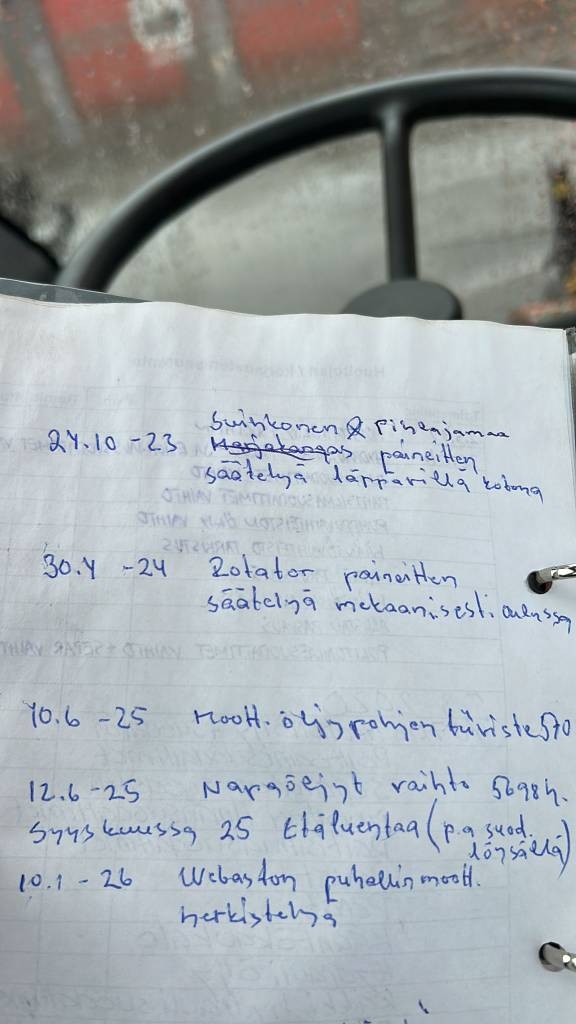 Suihkonen & Pihlajamaa
24.10 -23 Harjakangas paineitten
säätelyä läppärillä kotona
30.4 -24 Rotator paineitten
säätelyä mekaanisesti aulussa
10.6 -25 Moott. öljypohjen tiiviste 570
12.6 -25 Napaöljyt vaihto 5698h.
Syyskuussa 25 Etäluentaa (p.a suod.
löysällä)
10.1 - 26 Webaston puhallinmoott.
herkistelyä